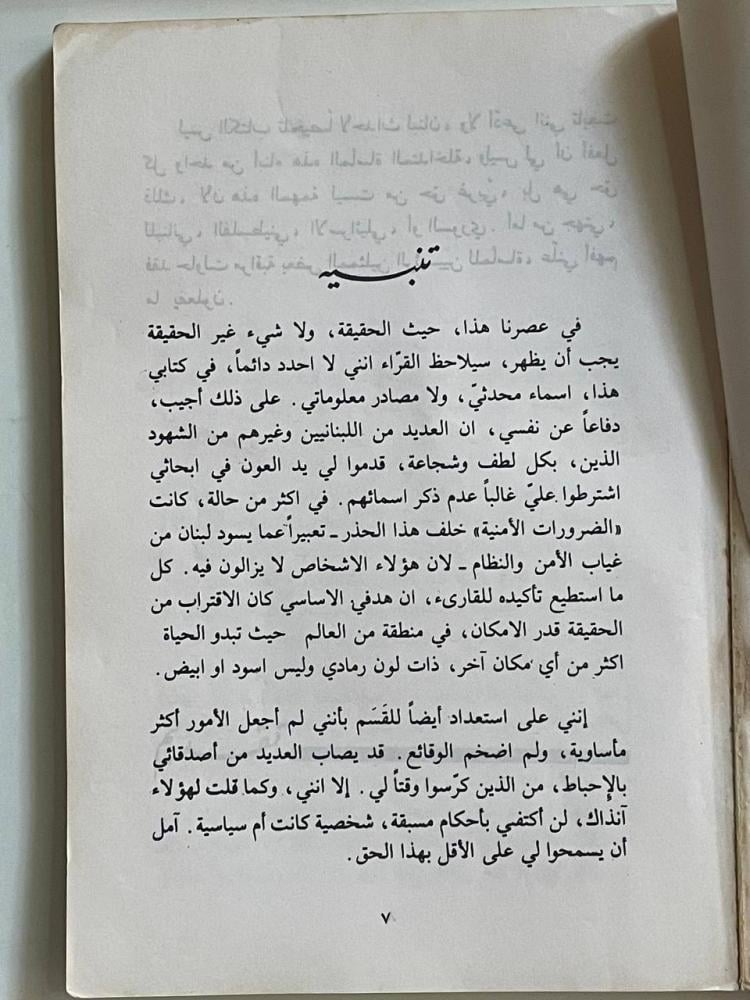 تنبيه
في عصرنا هذا، حيث الحقيقة، ولا شيء غير الحقيقة
يجب أن يظهر، سيلاحظ القرّاء انني لا احدد دائماً، في كتابي
هذا، اسماء محدثيّ، ولا مصادر معلوماتي. على ذلك أجيب،
دفاعاً عن نفسي، ان العديد من اللبنانيين وغيرهم من الشهود
الذين، بكل لطف وشجاعة، قدموا لي يد العون في ابحاثي
اشترطوا عليّ غالباً عدم ذكر اسمائهم. في اكثر من حالة، كانت
«الضرورات الأمنية» خلف هذا الحذر ـ تعبيراً عما يسود لبنان من
غياب الأمن والنظام ـ لان هؤلاء الاشخاص لا يزالون فيه. كل
ما استطيع تأكيده للقارىء، ان هدفي الاساسي كان الاقتراب من
الحقيقة قدر الامكان، في منطقة من العالم حيث تبدو الحياة
اكثر من أي مكان آخر، ذات لون رمادي وليس اسود او ابيض.
إنني على استعداد أيضاً للقَسَم بأنني لم أجعل الأمور أكثر
مأساوية، ولم اضخم الوقائع. قد يصاب العديد من أصدقائي
بالإحباط، من الذين كرّسوا وقتاً لي. إلا انني، وكما قلت لهؤلاء
آنذاك، لن أكتفي بأحكام مسبقة، شخصية كانت أم سياسية. آمل
أن يسمحوا لي على الأقل بهذا الحق.
٧